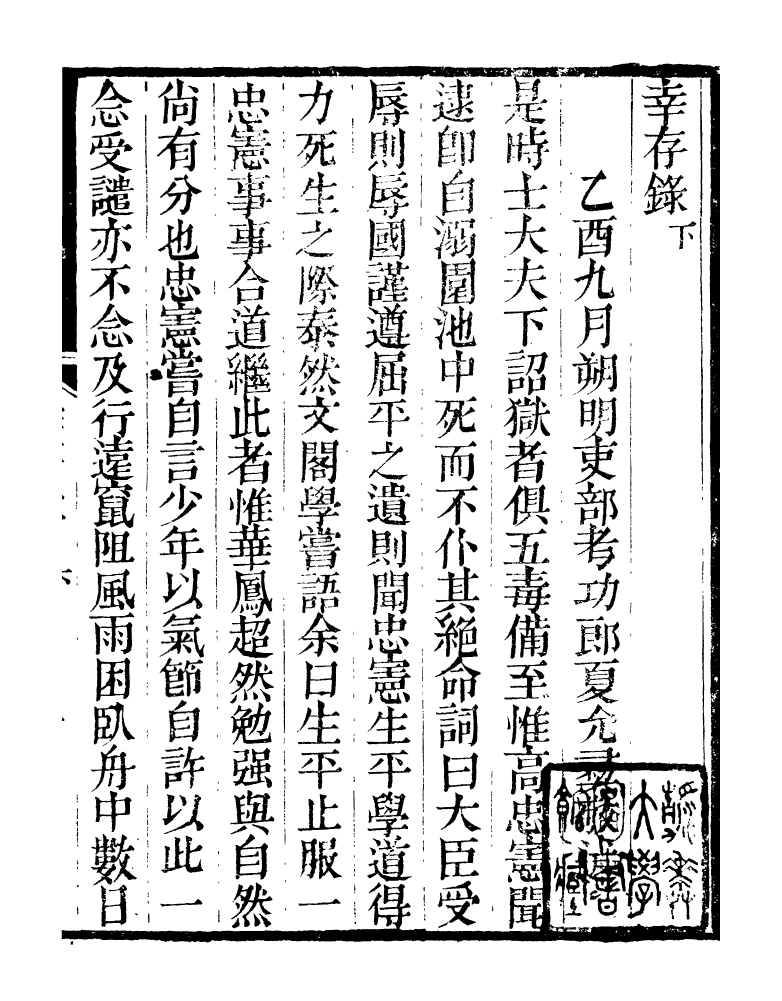 幸存錄下
乙酉九月朔明吏部考功郎夏允彝
是時士大夫下詔獄者俱五毒備至惟高忠憲聞
逮卽自溺園池中死而不仆其絕命詞曰大臣受
辱則辱國謹遵屈平之遺則聞忠憲生平學道得
力死生之際泰然文閣學嘗語余曰生平止服一
忠憲事事合道繼此者惟華鳳超然勉强與自然
尙有分也忠憲嘗自言少年以氣節自許以此一
念受譴亦不念及行遠竄阻風雨困臥舟中數日